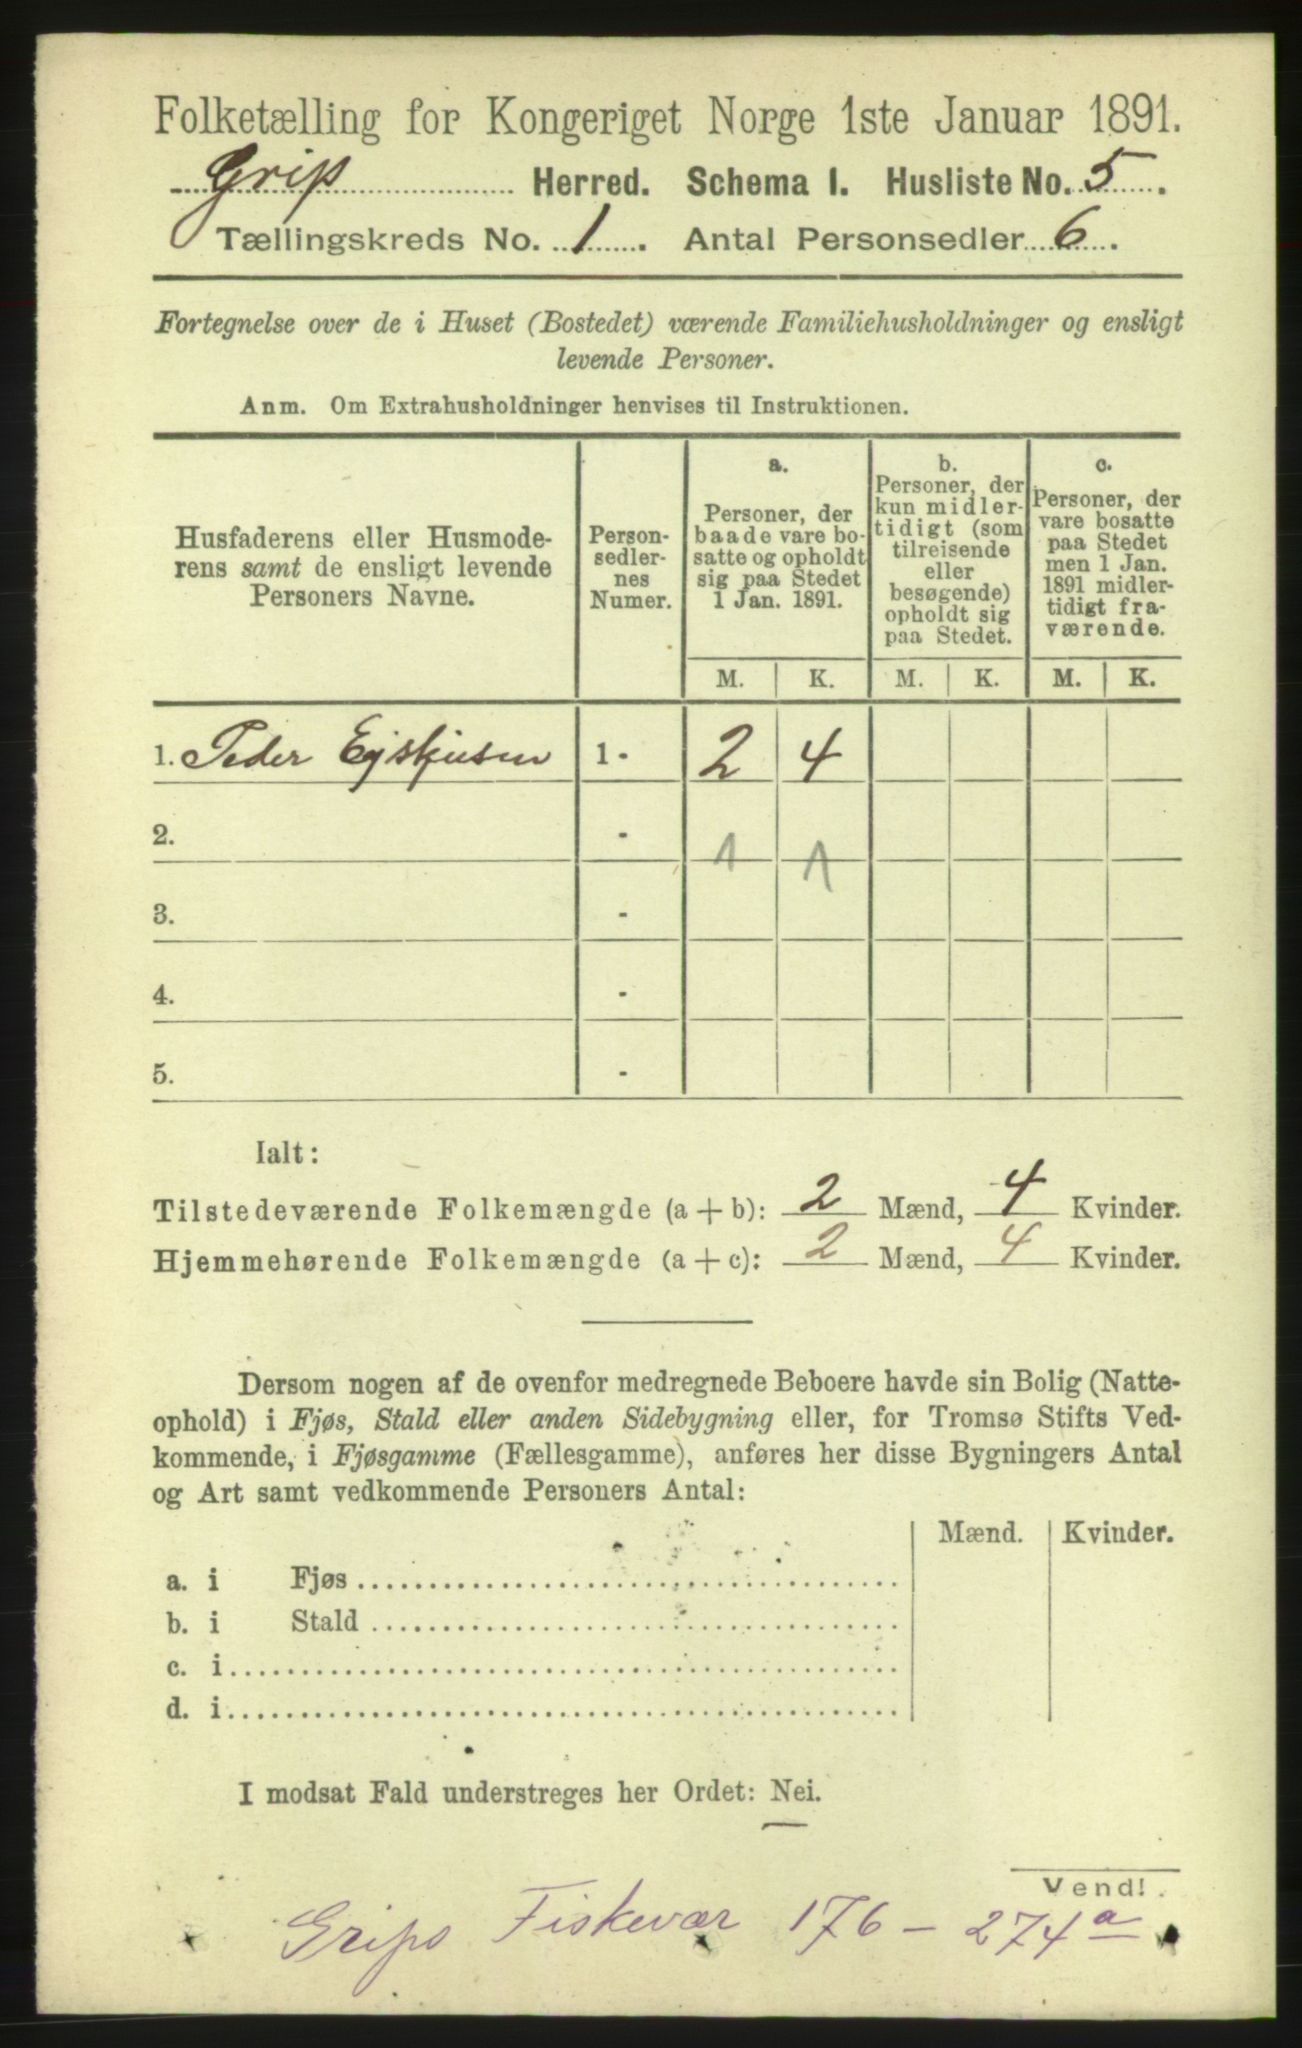 Folketælling for Kongeriget Norge 1ste Januar 1891.
Grip Herred. Schema 1. Husliste No. 5.
Tællingskreds No. 1. Antal Personsedler 6.
Fortegnelse over de i Huset (Bostedet) værende Familiehusholdninger og ensligt
levende Personer.
Anm. Om Extrahusholdninger henvises til Instruktionen.
Husfaderens eller Husmode-
rens samt de ensligt levende
Personers Navne.
Person-
sedler-
nes
Numer.
a.
Personer, der
baade vare bo-
satte og opholdt
sig paa Stedet
1 Jan. 1891.
b.
Personer, der
kun midler-
tidigt (som
tilreisende
eller
besøgende)
opholdt sig
paa Stedet.
c.
Personer, der
vare bosatte
paa Stedet
men 1 Jan.
1891 midler-
tidigt fra-
værende.
M. K. M. K. M. K.
1. Peder 1 - 2 4
2. - 1 1
3. -
4. -
5. -
Ialt:
Tilstedeværende Folkemængde (a + b): 2 Mænd, 4 Kvinder.
Hjemmehørende Folkemængde (a + c): 2 Mænd, 4 Kvinder.
Dersom nogen af de ovenfor medregnede Beboere havde sin Bolig (Natte-
ophold) i Fjøs, Stald eller anden Sidebygning eller, for Tromsø Stifts Ved-
kommende, i Fjøsgamme (Fællesgamme), anføres her disse Bygningers Antal
og Art samt vedkommende Personers Antal:
Mænd. Kvinder.
a. i Fjøs
b. i Stald
c. i
d. i
I modsat Fald understreges her Ordet: Nei.
Vend!
Grips Fiskevær 176 - 274a